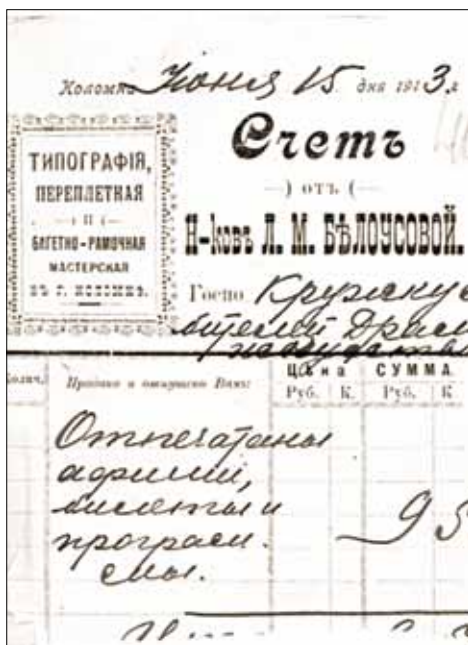 Коломна Іюня 15 дня 1913 г.
ТИПОГРАФІЯ,
ПЕРЕПЛЕТНАЯ
—) И (—
БАГЕТНО-РАМОЧНАЯ
МАСТЕРСКАЯ
ВЪ Г. КОЛОМНѢ.
Счетъ
—) отъ (—
Н-ковъ Л. М. БѢЛОУСОВОЙ.
Госпо Кружку
Колич.
Продано и отпущено Вамъ:
ЦѢна СУММА.
Руб. К. Руб. К
Отпечатаны
афиши,
билеты и
програм-
мы.
95